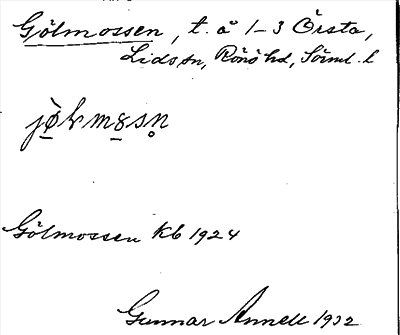 Gölmossen, t. å 1-3 Örsta,
Lids sn, Rönö hd, Sörml. l
jö̀lmå̀sn̥
Gölmossen Kb 1924
Gunnar Annell 1932